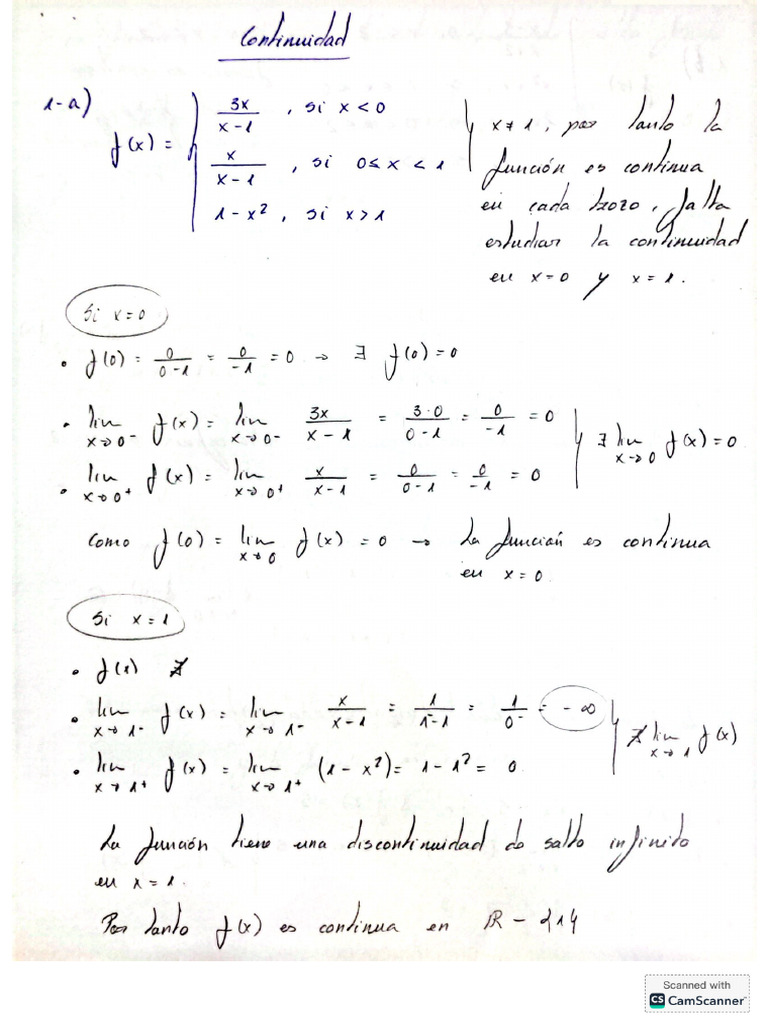 Continuidad
1-a)
f(x) = { 3x/(x-1) , si x < 0
x/(x-1) , si 0 ≤ x < 1
1-x² , si x > 1
x ≠ 1, por tanto la
función es continua
en cada trozo, falta
estudiar la continuidad
en x=0 y x=1.
Si x=0
• f(0) = 0/(0-1) = 0/-1 = 0 → ∃ f(0) = 0
• lim x→0⁻ f(x) = lim x→0⁻ 3x/(x-1) = 3·0/(0-1) = 0/-1 = 0
• lim x→0⁺ f(x) = lim x→0⁺ x/(x-1) = 0/(0-1) = 0/-1 = 0
∃ lim x→0 f(x) = 0
Como f(0) = lim x→0 f(x) = 0 → La función es continua
en x=0.
Si x=1
• f(1) ∄
• lim x→1⁻ f(x) = lim x→1⁻ x/(x-1) = 1/(1⁻-1) = 1/0⁻ = -∞
• lim x→1⁺ f(x) = lim x→1⁺ (1-x²) = 1-1² = 0.
∄ lim x→1 f(x)
La función tiene una discontinuidad de salto infinito
en x=1.
Por tanto f(x) es continua en ℝ - {1}
Scanned with
CS CamScanner